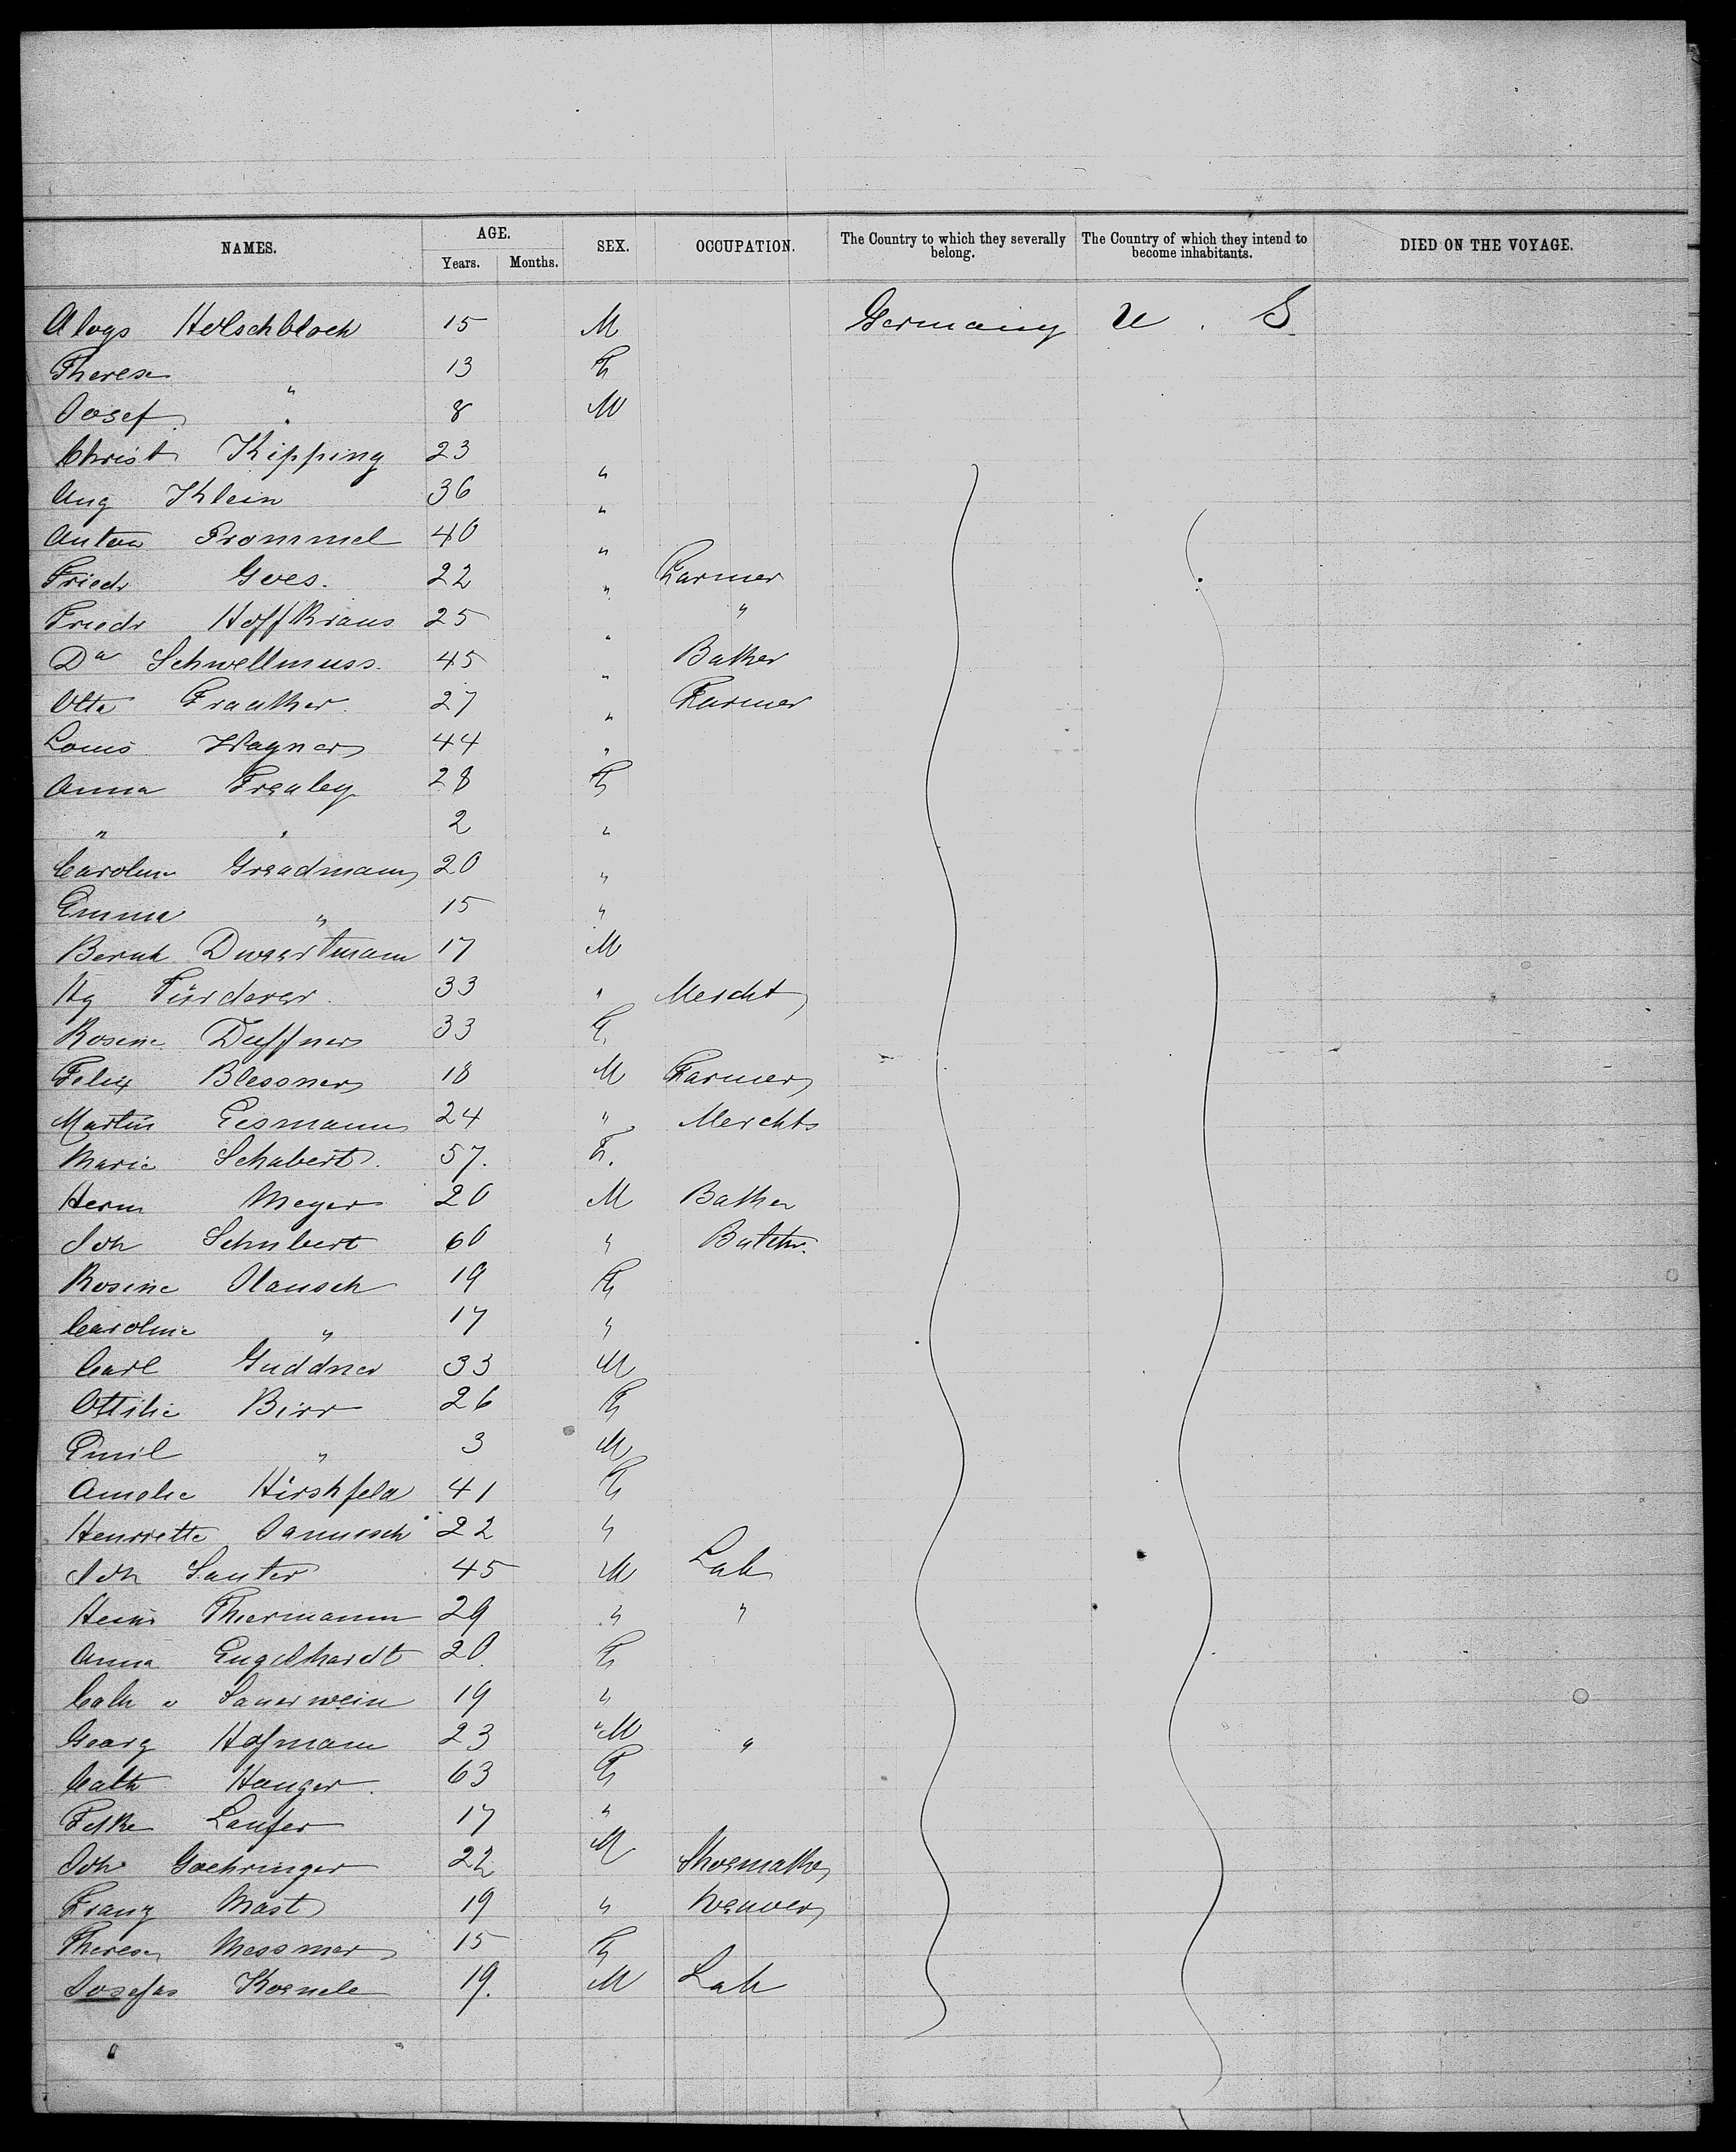 NAMES. AGE. SEX. OCCUPATION. The Country to which they severally belong. The Country of which they intend to become inhabitants. DIED ON THE VOYAGE.
Years. Months.
Aloys Holschbloch 15 M Germany U. S.
Therese " 13 F
Josef " 8 M
Christ Kipping 23 "
Aug Klein 36 "
Anton Frommel 40 "
Friedr Goes. 22 " Farmer
Friedr Hoffkraus 25 " "
Da Schwellmuss. 45 " Baker
Otto Fraaker. 27 " Farmer
Louis Wagner 44 "
Anna Frealey 28 F
" " 2 "
Caroline Greadmann 20 "
Emma " 15 "
Bernh Dweertmann 17 M
Hy Fürderer. 33 " Mercht
Rosine Duffner 33 F
Felix Blessner 18 M Farmer
Martin Eesmann 24 " Mercht
Marie Schubert. 57. F.
Herm Meyer 20 M Baker
Joh Schubert 60 " Butchr.
Rosine Olansch 19 F
Caroline " 17 "
Carl Guddner 33 M
Ottilie Birr 26 F
Emil " 3 M
Amelie Hirshfeld 41 F
Henriette Janusch 22 "
Joh Sauter 45 M Lab
Heinr Thiermann 29 " "
Anna Engelhardt 20. F
Cath v Sauerwein 19 "
Georg Hofmann 23 "M "
Cath Hanger. 63 F
Felke Laufer 17 "
Joh Goehringer 22 M Shoemaker
Franz Mast 19 " Weaver
Therese Messmer 15 F
Josefas Koenele 19. M Lab